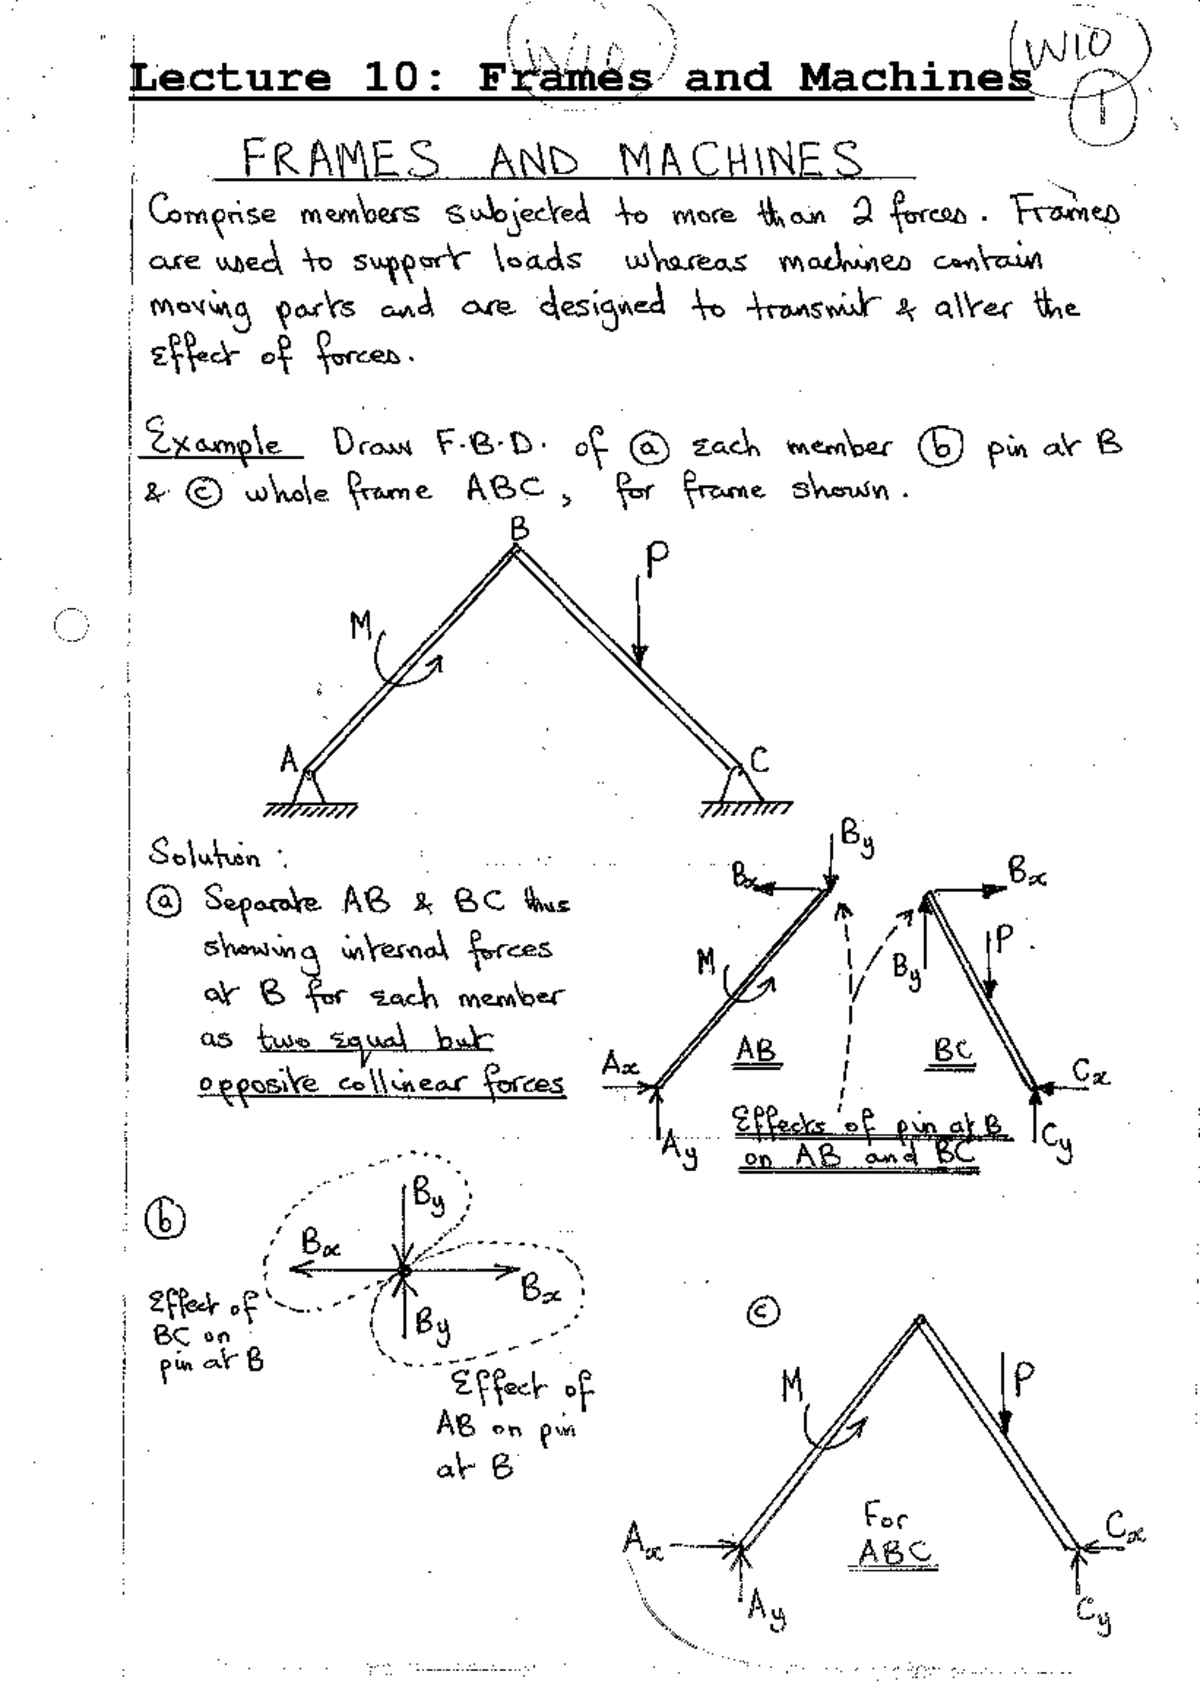 W10
(W10)
Lecture 10: Frames and Machines
1
FRAMES AND MACHINES
Comprise members subjected to more than 2 forces. Frames
are used to support loads whereas machines contain
moving parts and are designed to transmit & alter the
Effect of forces.
Example Draw F.B.D. of (a) Each member (b) pin at B
& (c) whole frame ABC, for frame shown.
B
P
M
A
C
Solution:
(a) Separate AB & BC thus
showing internal forces
at B for Each member
as two Equal but
opposite collinear forces
By
Bx
Bx
P
By
M
AB
BC
Ax
Cx
Ay
Cy
Effects of pin at B
on AB and BC
(b)
By
Bx
Bx
By
Effect of
BC on
pin at B
Effect of
AB on pin
at B
(c)
M
P
For
ABC
Ax
Cx
Ay
Cy